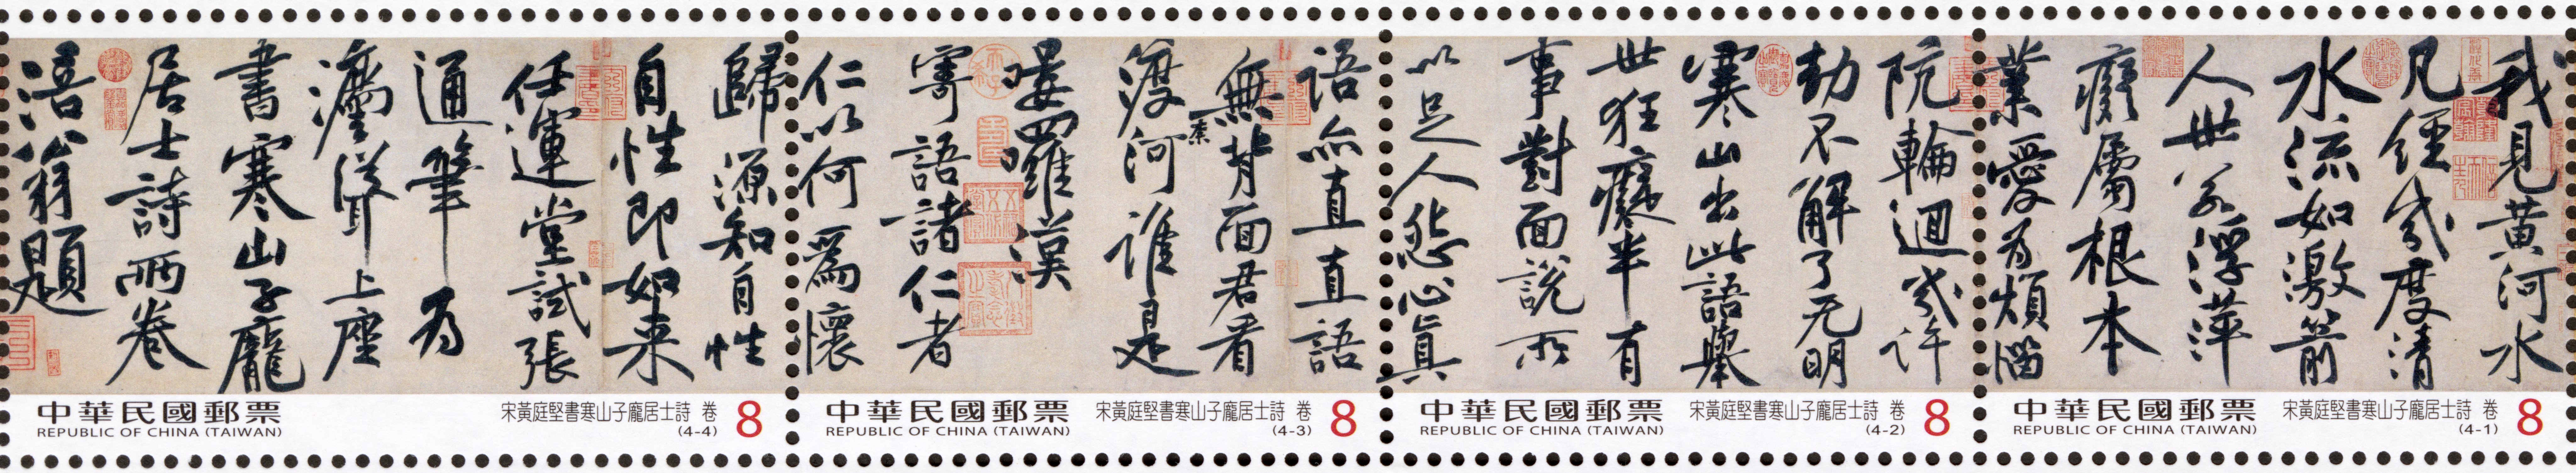 我見黃河水
凡經幾度清
水流如激箭
人世若浮萍
癡屬根本
業愛為煩惱
中華民國郵票
REPUBLIC OF CHINA (TAIWAN)
宋黃庭堅書寒山子龐居士詩 卷
(4-1)
8
阬輪迴幾許
劫不解了无明
寒山出此語舉
世狂癡半有
事對面說所
以足人怨心真
中華民國郵票
REPUBLIC OF CHINA (TAIWAN)
宋黃庭堅書寒山子龐居士詩 卷
(4-2)
8
語亦直直語
無背面君看
渡柰河誰是
嘍囉漢
寄語諸仁者
仁以何爲懷
中華民國郵票
REPUBLIC OF CHINA (TAIWAN)
宋黃庭堅書寒山子龐居士詩 卷
(4-3)
8
歸源知自性
自性即如来
任運堂試張
通筆為
灋聳上座
書寒山子龐
居士詩兩卷
涪翁題
中華民國郵票
REPUBLIC OF CHINA (TAIWAN)
宋黃庭堅書寒山子龐居士詩 卷
(4-4)
8